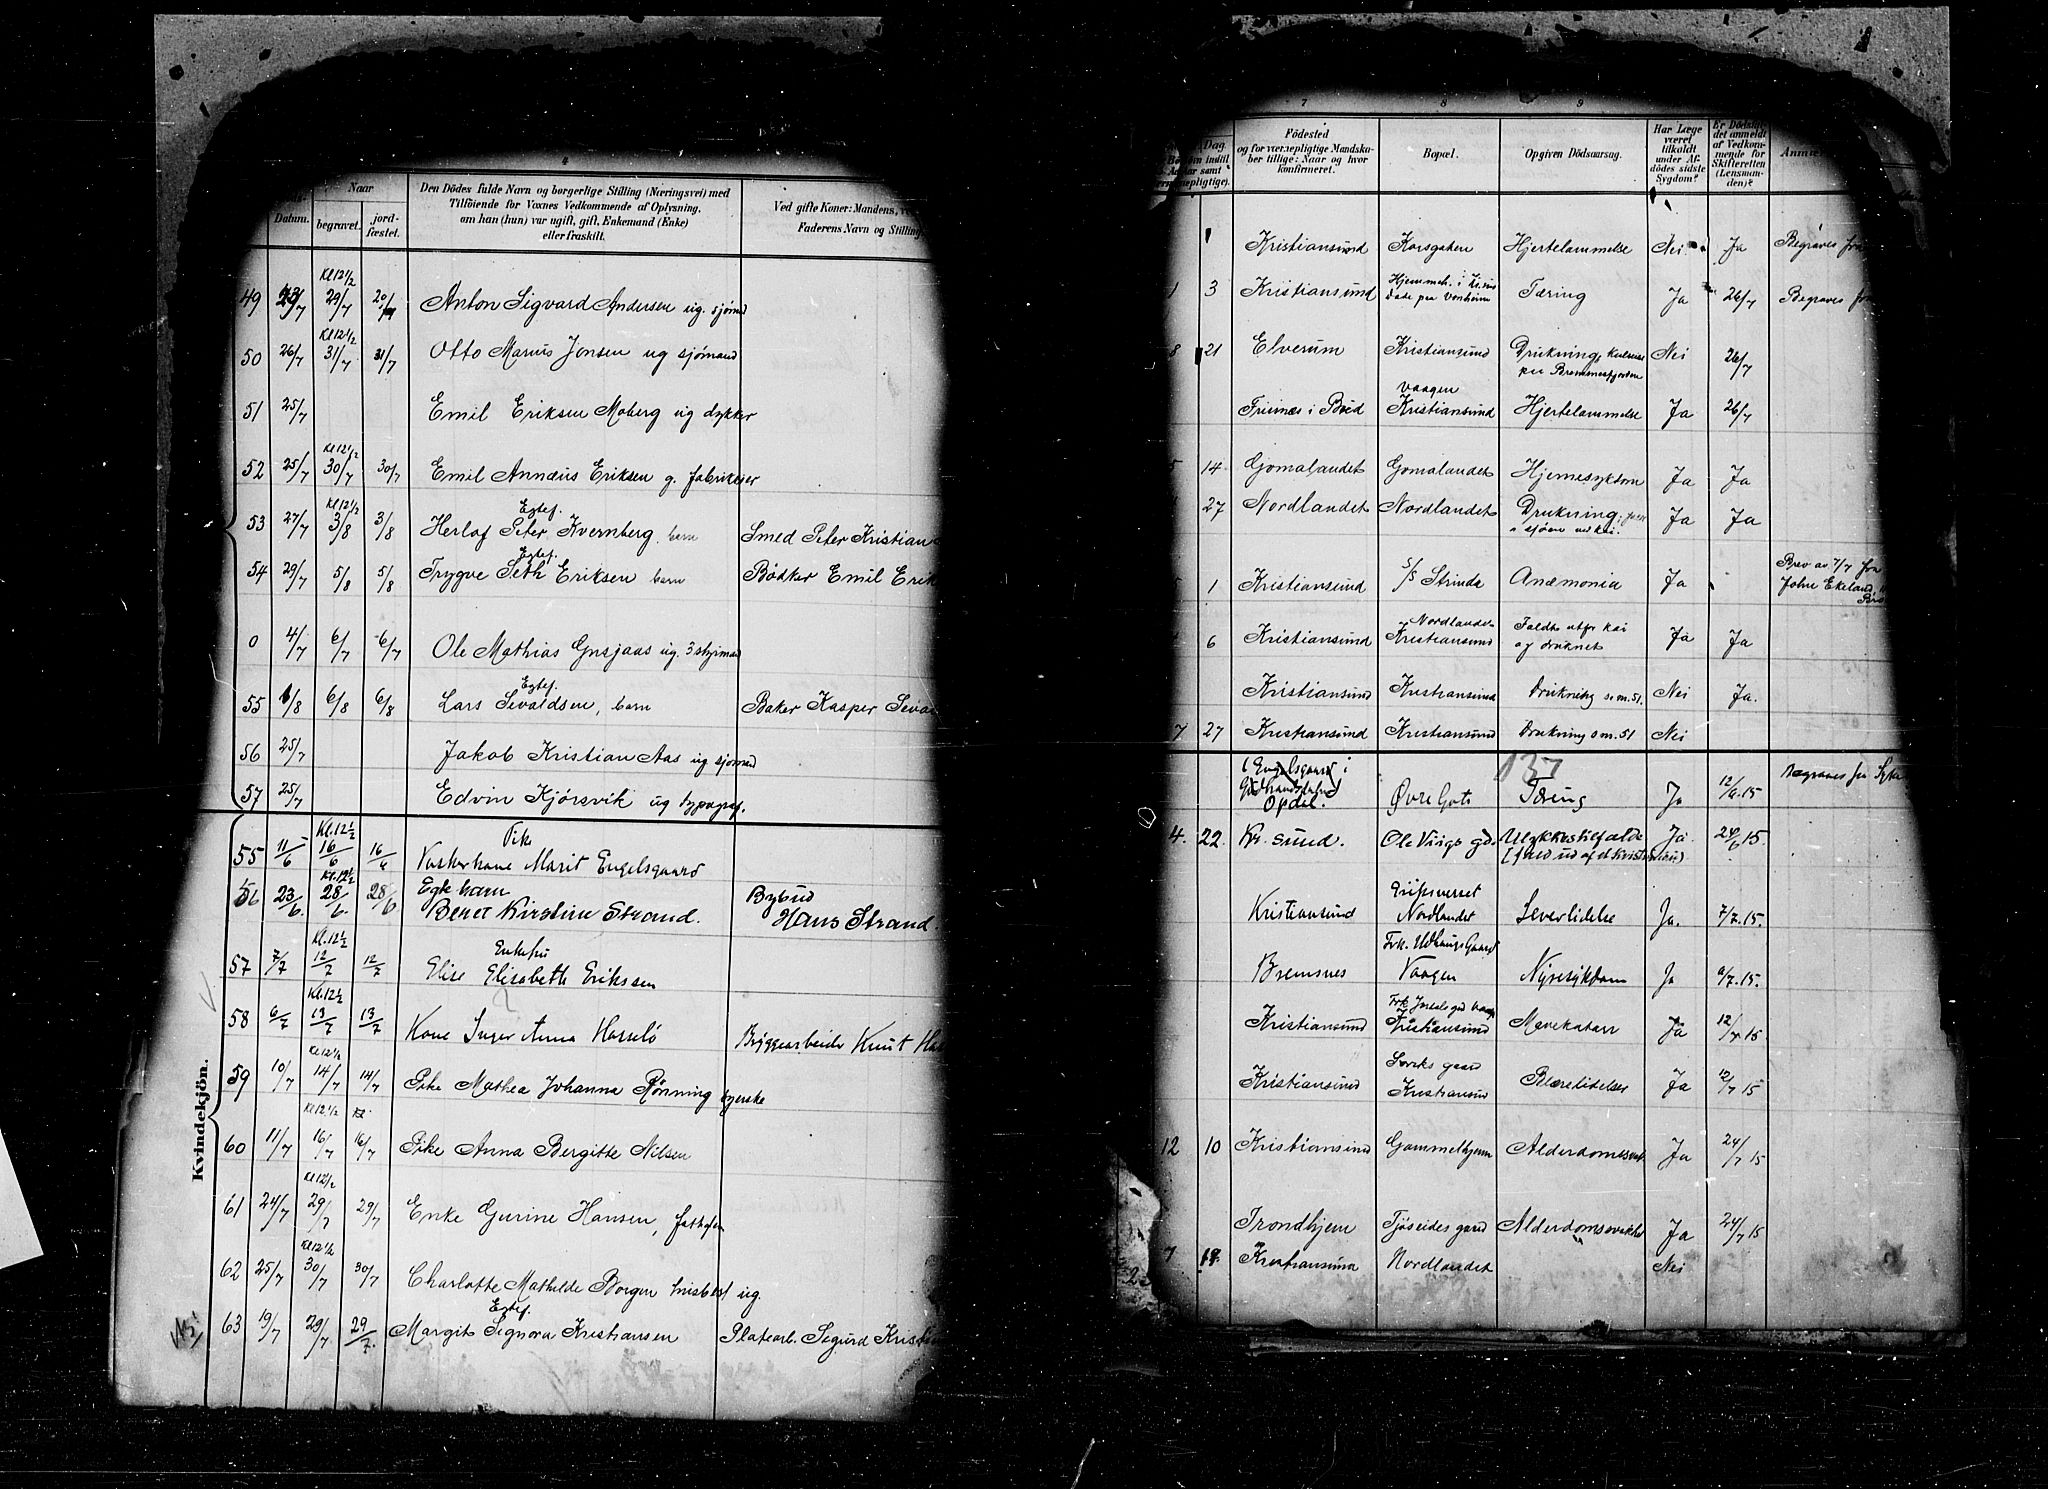 4
Datum.
Naar
begravet.
jord-
fæstet.
Den Dödes fulde Navn og borgerlige Stilling (Næringsvei) med
Tilföiende for Voxnes Vedkommende af Oplysning.
om han (hun) var ugift, gift, Enkemand (Enke)
eller fraskilt.
Ved gifte Koner: Mandens,
Faderens Navn og Stilling
Kl 12 1/2
49 29/7 29/7 Anton Sigvard Andersen ug. sjømd
Kl 12 1/2
50 26/7 31/7 31/7 Otto Marius Jensen ug sjømand
51 25/7 Emil Eriksen Moberg ug dykker
Kl 12 1/2
52 25/7 30/7 30/7 Emil Annæus Eriksen g. fabrikeier
Kl 12 1/2 Egtef.
53 27/7 3/8 3/8 Herlof Peter Kvernberg barn Smed Peter Kristian
Egtef.
54 29/7 5/8 5/8 Trygve Seth Eriksen barn Bødker Emil Erik
0 4/7 6/7 6/7 Ole Mathias Gnsjaas ug. 3 styrmad
Egtef.
55 1/8 6/8 6/8 Lars Sevaldsen, barn Baker Kasper Seva
56 25/7 Jakob Kristian Aas ug sjømad
57 25/7 Edvin Kjørsvik ug typograf.
Kvindekjön.
Kl. 12 1/2 Pike
55 11/6 16/6 16/6 Marit Engelsgaard
Kl. 12 1/2 Egte barn Bybud
56 23/6. 28/6. 28/6 Beret Kirstine Strand. Hans Strand.
Kl. 12 1/2 Enkefru
57 7/7 12/7 12/7 Elise Elisabeth Erikssen
Kl. 12 1/2
58 6/7 13/7 13/7 Kone Inger Anna Hasselö Bryggearbeider Knut Ha
Kl 12 1/2
59 10/7 14/7 14/7 Pike Mathea Johanna Rønning syerske
Kl 12 1/2 Kl.
60 11/7 16/7 16/7 Pike Anna Bergitte Nilsen
Kl 12 1/2
61 24/7 29/7 29/7 Enke Gurine Hansen,
Kl 12 1/2
62 25/7 30/7 30/7 Charlotte Mathilde Borgen husbest ug.
Egtef.
63 19/7 29/7 29/7. Margit Signora Kristiansen Platearb. Sigurd Krist
7 8 9
Dag.
Födested
og for værnepligtige Mandska-
ber tillige: Naar og hvor
konfirmeret.
Bopæl.
Opgiven Dödsaarsag.
Har Læge
været
tilkaldt
under Af-
dödes sidste
Sygdom?
Er Dödsfal-
det anmeldt
af Vedkom-
mende for
Skifteretten
(Lensman-
den)?
Anmæ
Kristiansund Korsgaten Hjertelammelse Nei Ja Begraves fra
1 3 Kristiansund Hjemmeh. i Kr.sund Tæring Ja 26/7 Begraves fra
8 21 Elverum Kristiansund Drukning, Nei 26/7
paa Bremnesfjorden
Vaagen
i Bud Kristiansund Hjertelammelse Ja 26/7
5 14 Gomalandet Gomalandet Hjernesykdom Ja Ja
27 Nordlandet Nordlandet Drukning, Ja Ja
i sjøen ved kai.
1 Kristiansund S/S Strinda Anæmonia Ja Brev av 7/7 fra
John Ekeland
6 Kristiansund Nordlandet Faldt utfor kai Ja Ja
Kristiansund og druknet
Kristiansund Kristiansund Drukning som 51. Nei Ja.
7 27 Kristiansund Kristiansund Drukning som 51 Nei
137
Engelsgaard i
Gudbrandsdalen
Opdal. Øvre Gate Tæring Ja 12/6.15 Begraves fra Syke
4. 22. Kr.sund. Ole Vigs gd. Ulykkestilfælde Ja 24/6 15.
Nordlandet
Kristiansund Leverlidelse Ja. 7/7.15.
Bremsnes Vaagen Nyresykdom Ja 9/7.15.
Kristiansund Kristiansund Mavekatarr Ja 12/7 15.
Kristiansund gaard Blærelidelse Ja 12/7 15
Kristiansund
12 10 Kristiansund Gammelhjem Alderdomssvak Ja 24/7 15
Trondhjem Tjøseides gaard Alderdomssvakhet Ja 24/7 15
7 19. Kristiansund Nordlandet Nei